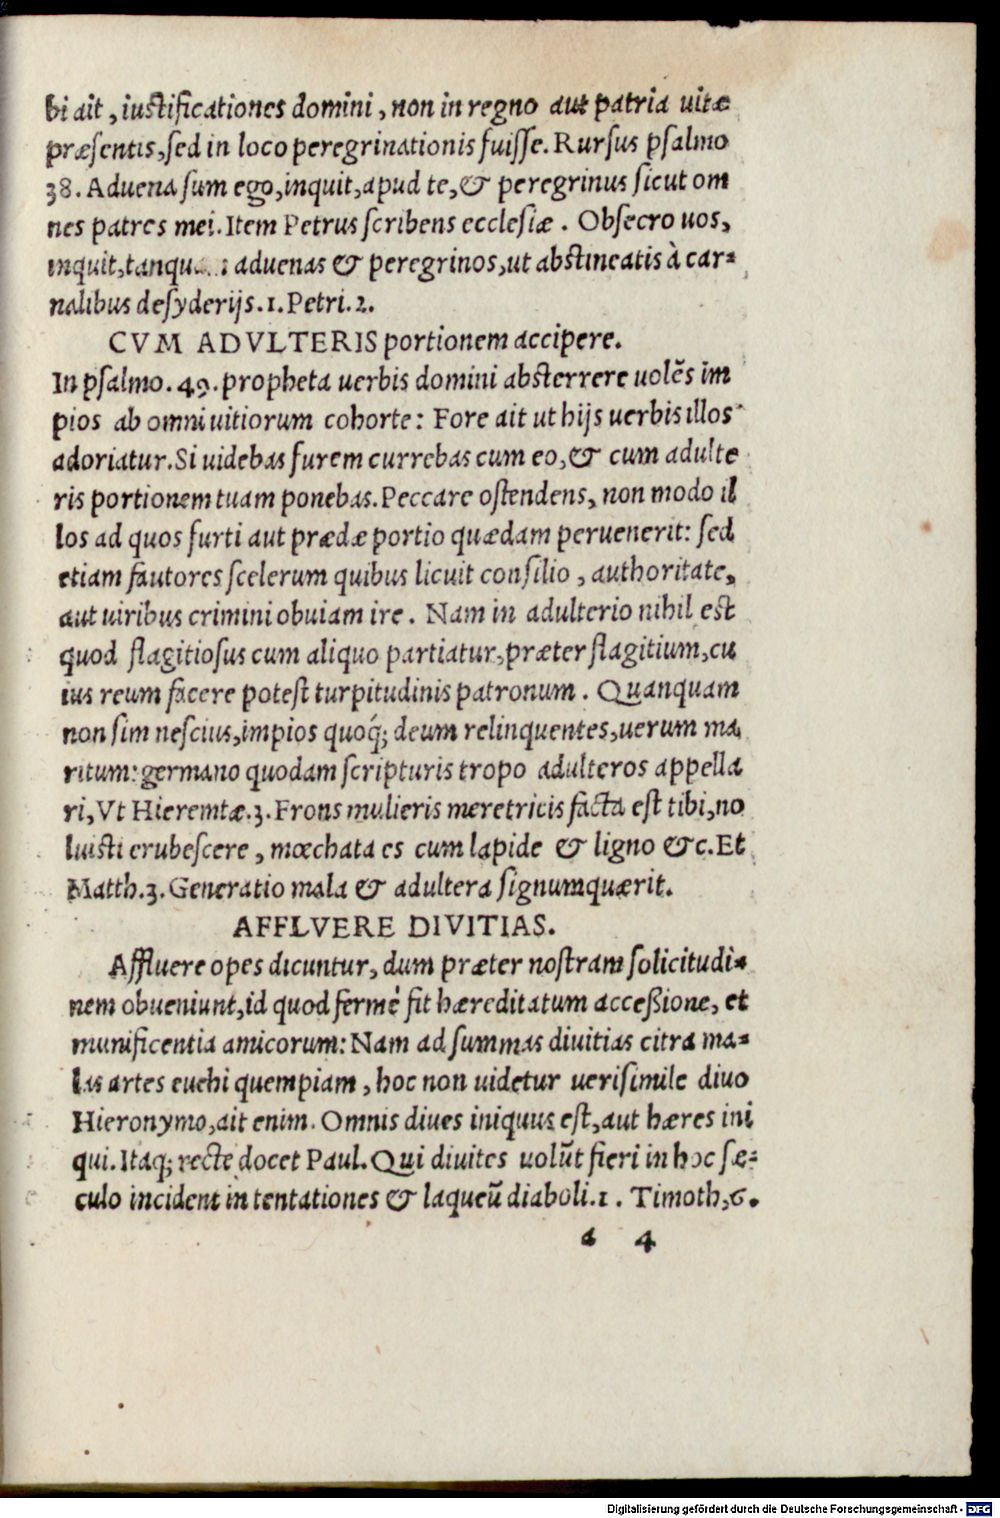 bi ait, iustificationes domini, non in regno aut patria uitæ
præsentis, sed in loco peregrinationis fuisse. Rursus psalmo
38. Aduena sum ego, inquit, apud te, & peregrinus sicut om
nes patres mei. Item Petrus scribens ecclesiæ. Obsecro uos,
inquit, aduenas & peregrinos, ut abstineatis à car-
nalibus desyderijs. 1. Petri. 2.
CVM ADVLTERIS portionem accipere.
In psalmo. 49. propheta uerbis domini absterrere uolẽs im
pios ab omni uitiorum cohorte: Fore ait ut hijs uerbis illos
adoriatur. Si uidebas furem currebas cum eo, & cum adulte
ris portionem tuam ponebas. Peccare ostendens, non modo il
los ad quos furti aut prædæ portio quædam peruenerit: sed
etiam fautores scelerum quibus licuit consilio, authoritate,
aut uiribus crimini obuiam ire. Nam in adulterio nihil est
quod flagitiosus cum aliquo partiatur, præter flagitium, cu
ius reum facere potest turpitudinis patronum. Quanquam
non sim nescius, impios quoq; deum relinquentes, uerum ma
ritum: germano quodam scripturis tropo adulteros appella
ri, Vt Hieremiæ. 3. Frons mulieris meretricis facta est tibi, no
luisti erubescere, mœchata es cum lapide & ligno &c. Et
Matth. 3. Generatio mala & adultera signum quærit.
AFFLVERE DIVITIAS.
Affluere opes dicuntur, dum præter nostram solicitudi-
nem obueniunt, id quod fermè fit hæreditatum accessione, et
munificentia amicorum: Nam ad summas diuitias citra ma-
las artes euehi quempiam, hoc non uidetur uerisimile diuo
Hieronymo, ait enim. Omnis diues iniquus est, aut hæres ini
qui. Itaq; recte docet Paul. Qui diuites uolũt fieri in hoc sæ-
culo incident in tentationes & laqueũ diaboli. 1. Timoth, 6.
a 4
Digitalisierung gefördert durch die Deutsche Forschungsgemeinschaft - DFG